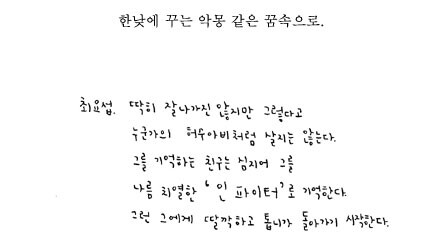 한낮에 꾸는 악몽 같은 꿈속으로.
최요섭. 딱히 잘나가진 않지만 그렇다고
누군가의 허수아비처럼 살지는 않는다.
그를 기억하는 친구는 심지어 그를
나름 치열한 '인파이터'로 기억한다.
그런 그에게 딸깍하고 톱니가 돌아가기 시작한다.